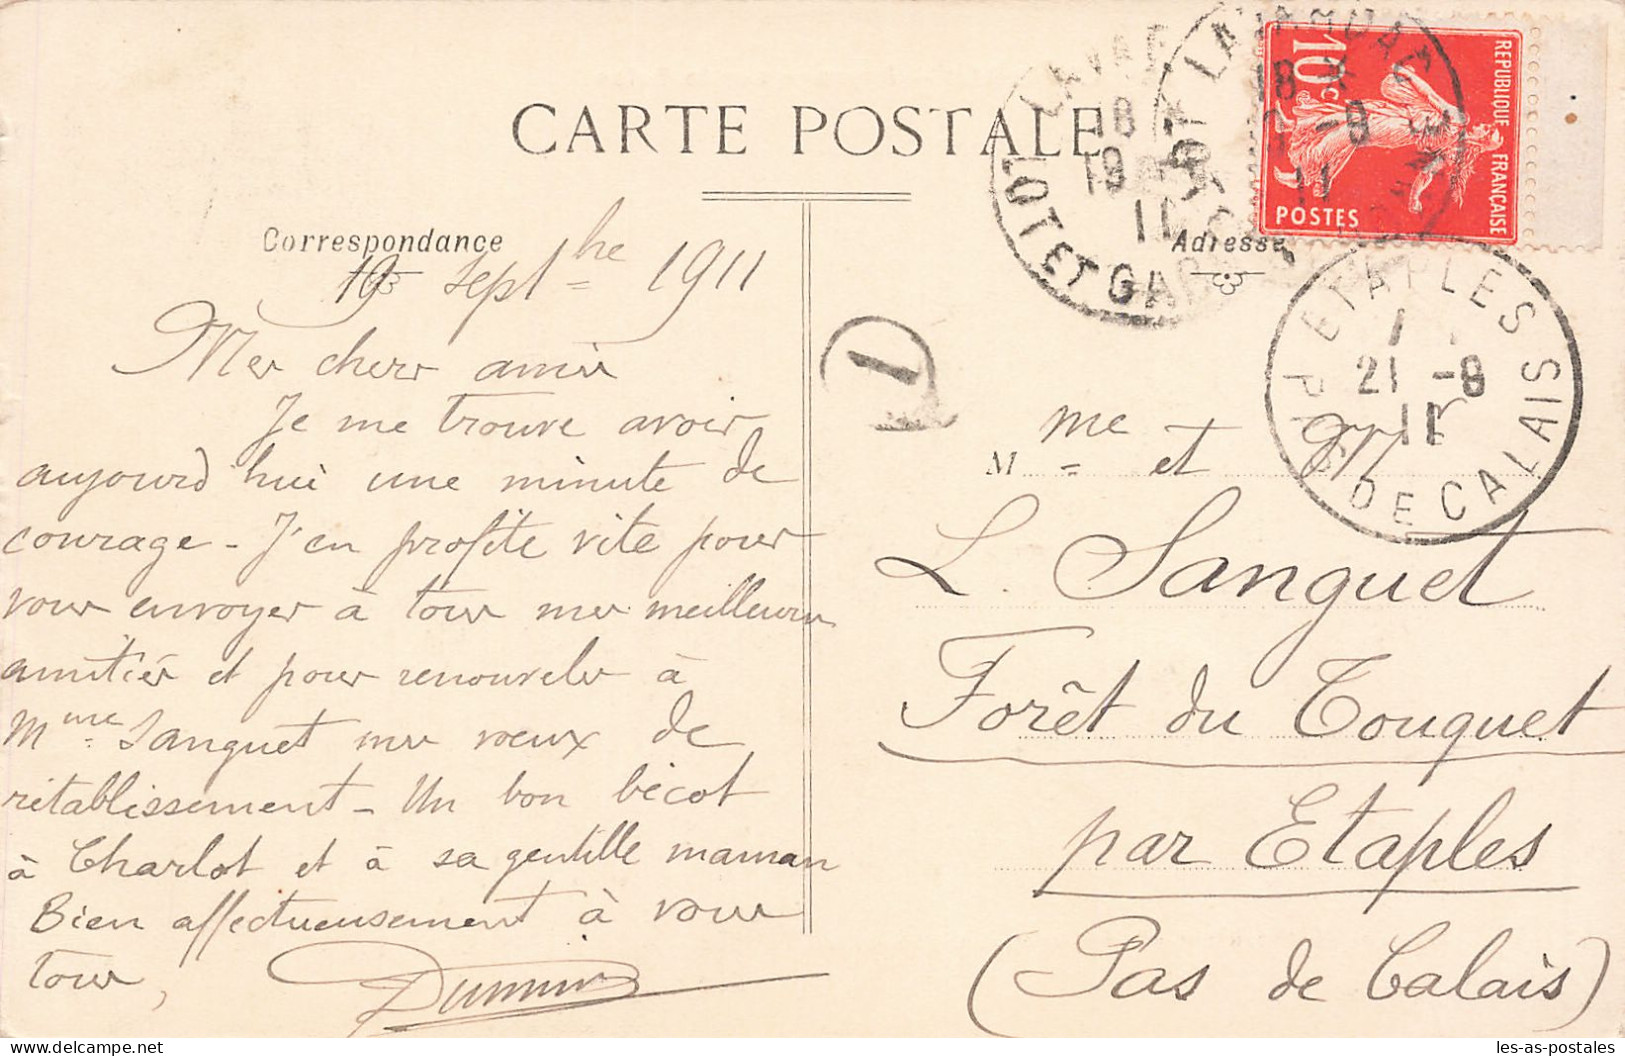 CARTE POSTALE
Correspondance
Adresse
19 Sept bre 1911
Mes chers amis
Je me trouve avoir
aujourd'hui une minute de
courage - J'en profite vite pour
vous envoyer à tous mes meilleures
amitiés et pour renouveler à
Mme Sanguet mes voeux de
rétablissement - Un bon bécot
à Charlot et à sa gentille maman
Bien affectueusement à vous
tous,
M me et Mr
L. Sanguet
Forêt du Touquet
par Etaples
(Pas de Calais)
10c
REPUBLIQUE FRANÇAISE
POSTES
LOT ET GAR
18
11
LOT
18
-9
11
ETAPLES
21 -9
11
PAS DE CALAIS
1
les-as-postales